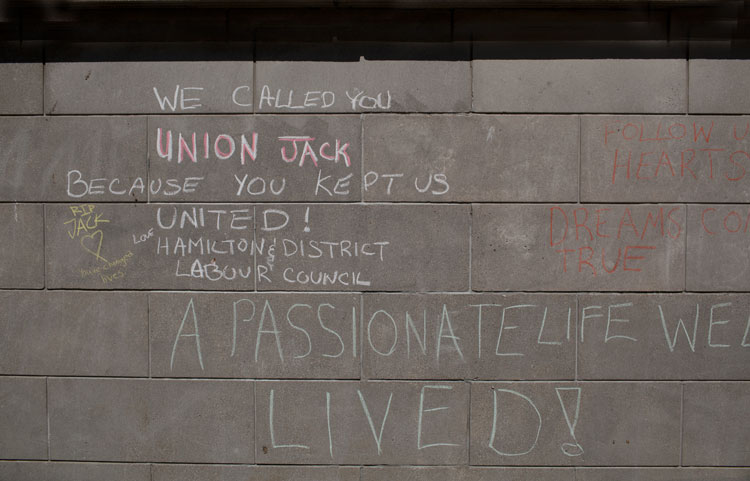 WE CALLED YOU
UNION JACK
BECAUSE YOU KEPT US
UNITED!
LOVE HAMILTON & DISTRICT
LABOUR COUNCIL
RIP
JACK
lives
FOLLOW
HEARTS
DREAMS
TRUE
A PASSIONATE LIFE WELL
LIVED!